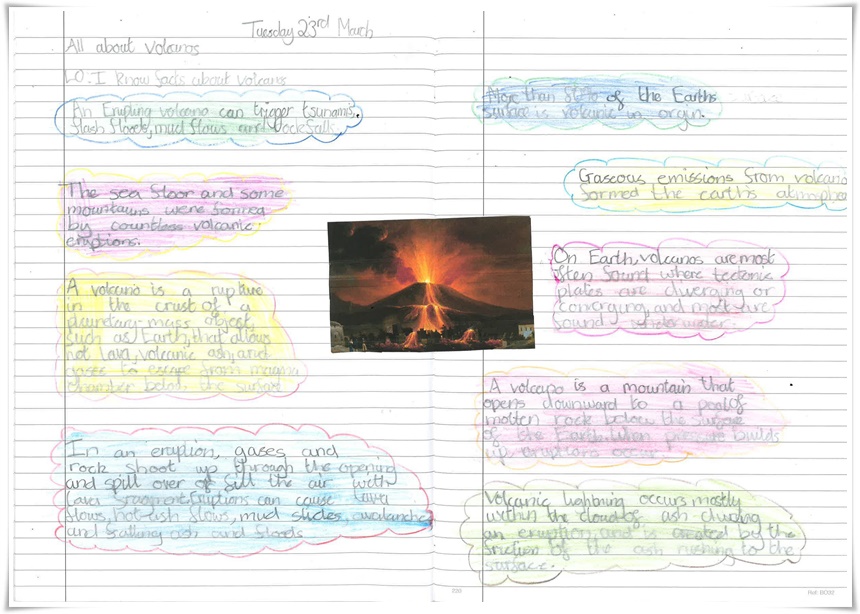 Tuesday 23rd March
All about volcanos
LO: I know facts about volcano
An Erupting volcano can trigger tsunamis,
flash floods, mud flows and rockfalls.
The sea floor and some
mountains were formed
by countless volcanic
eruptions.
A volcano is a rupture
in the crust of a
planetary-mass object,
such as Earth, that allows
hot lava, volcanic ash, and
gases to escape from magma
chamber below the surface
In an eruption, gases and
rock shoot up through the opening
and spill over of fill the air with
lava fragment. Eruptions can cause lava
flows, hot-ash flows, mud slides, avalanche
and falling ash and floods
More than 80% of the Earths
surface is volcanic in orgin.
Gaseous emissions from volcano
formed the earth's atmphe
On Earth, volcanos are most
often found where tectonic
plates are diverging or
converging, and most are
found underwater.
A volcano is a mountain that
opens downward to a pool of
molten rock below the surface
of the Earth. When pressure builds
up eruptions occur.
Volcanic lightning occurs mostly
within the cloud of ash during
an eruption, and is created by the
friction of the ash rushing to the
surface.